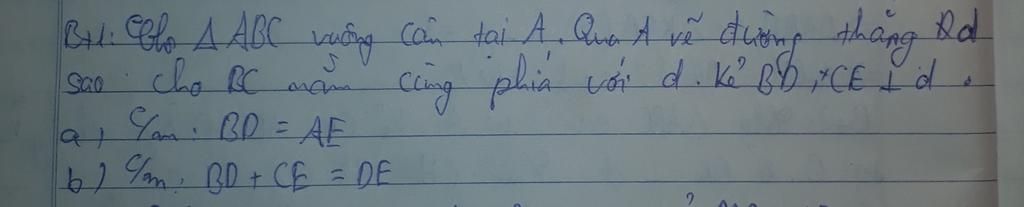 Bt1: Cho Δ ABC vuông cân tại A. Qua A vẽ đường thẳng d
sao cho BC nằm cùng phía với d. Kẻ BD, CE ⊥ d.
a, C/m: BD = AE
b) C/m: BD + CE = DE